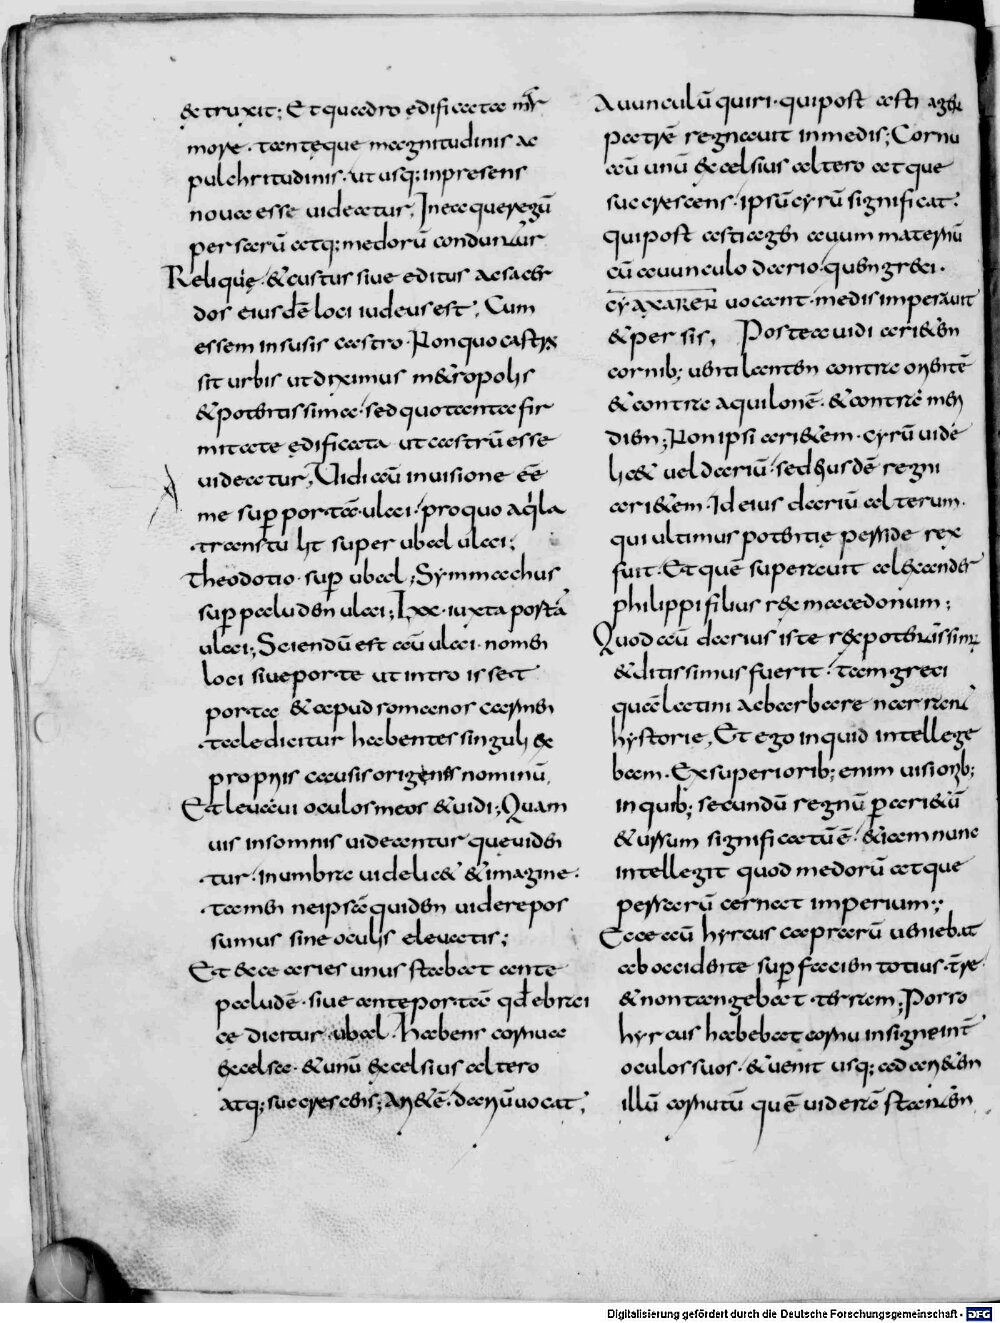 & truxit; Et quadro ędificata mar
more · tantęque magnitudinis ac
pulchritudinis · ut usq; inpresens
noua esse uideatur, Inea queregū
persarū atq; medorū conduntur
Reliquię · & custus siue editus a sacer
dos eiusdē loci iudeus est, Cum
essem in susis castro · Non quo castrū
sit urbis ut diximus m&ropolis
& potentissima · sed quo tanta fir
mitate ędificata ut castrū esse
uideatur, Uidi aū in uisione eē
me sup portā · ulai · pro quo aq̇la
transtulit super ubal ulai;
Theodotio · sup ubal; Symmachus
sup paluden ulai; Lxx · iuxta portā
ulai; Sciendū est aū ulai · nomen
loci siue porte ut in trois sęt
porta & apud romanos carmen
tale dicitur habentes singuli &
propriis causis origenes nominū,
Et leuaui oculos meos & uidi; Quam
uis in somnis uideantur que uiden
tur · in umbra uidelic& & imagine ·
tamen ne ipsā quiden uidere pos
sumus sine oculis eleuatis;
Et ecce aries unus stabat ante
paludē · siue ante portā qđ ebrai
ce dicitur ubal · habens cornua
excelsa · & unū excelsius altero
atq; succrescens; Ari&ē · dariū uocat,
Auunculū quiri · qui post asti agen
patrē regnauit in medis; Cornu
aū unū excelsius altero atque
succrescens · ipsū cyrū significat ·
qui post astiagen auum maternū
cū auunculo dario · quen greci ·
CYAXAREN uocant · medis imperauit
& persis, Postea uidi ari&en
cornib; uentilanten contra orientē
& contra aquilonē · & contra meri
dien; Non ipsi ari&em · cyrū uide
lic& uel dariū · sed eiusdē regni
ari&em · Id eius dariū alterum ·
qui ultimus potentię persidę rex
fuit · Et quē superauit alexander
philippi filius rex macedonum;
Quod aū darius iste rex potentissim;
& ditissimus fuerit · tam greci
quā latini ac barbare narrant
hystorię, Et ego inquid intellege
bam · Ex superiorib; enim uisionib;
in quib; secundū regnū p ari&ū
& ursum significatū ē · &iam nunc
intellegit quod medorū atque
persarū cernat imperium;
Ecce aū hyrcus caprarū ueniebat
ab occidente sup facien totius tre
& non tangebat · terram; Porro
hyrcus habebat cornu insigne int
oculos suos · & uenit usq; ad ari&en
illū cornutū quē uideram stanten
Digitalisierung gefördert durch die Deutsche Forschungsgemeinschaft - DFG